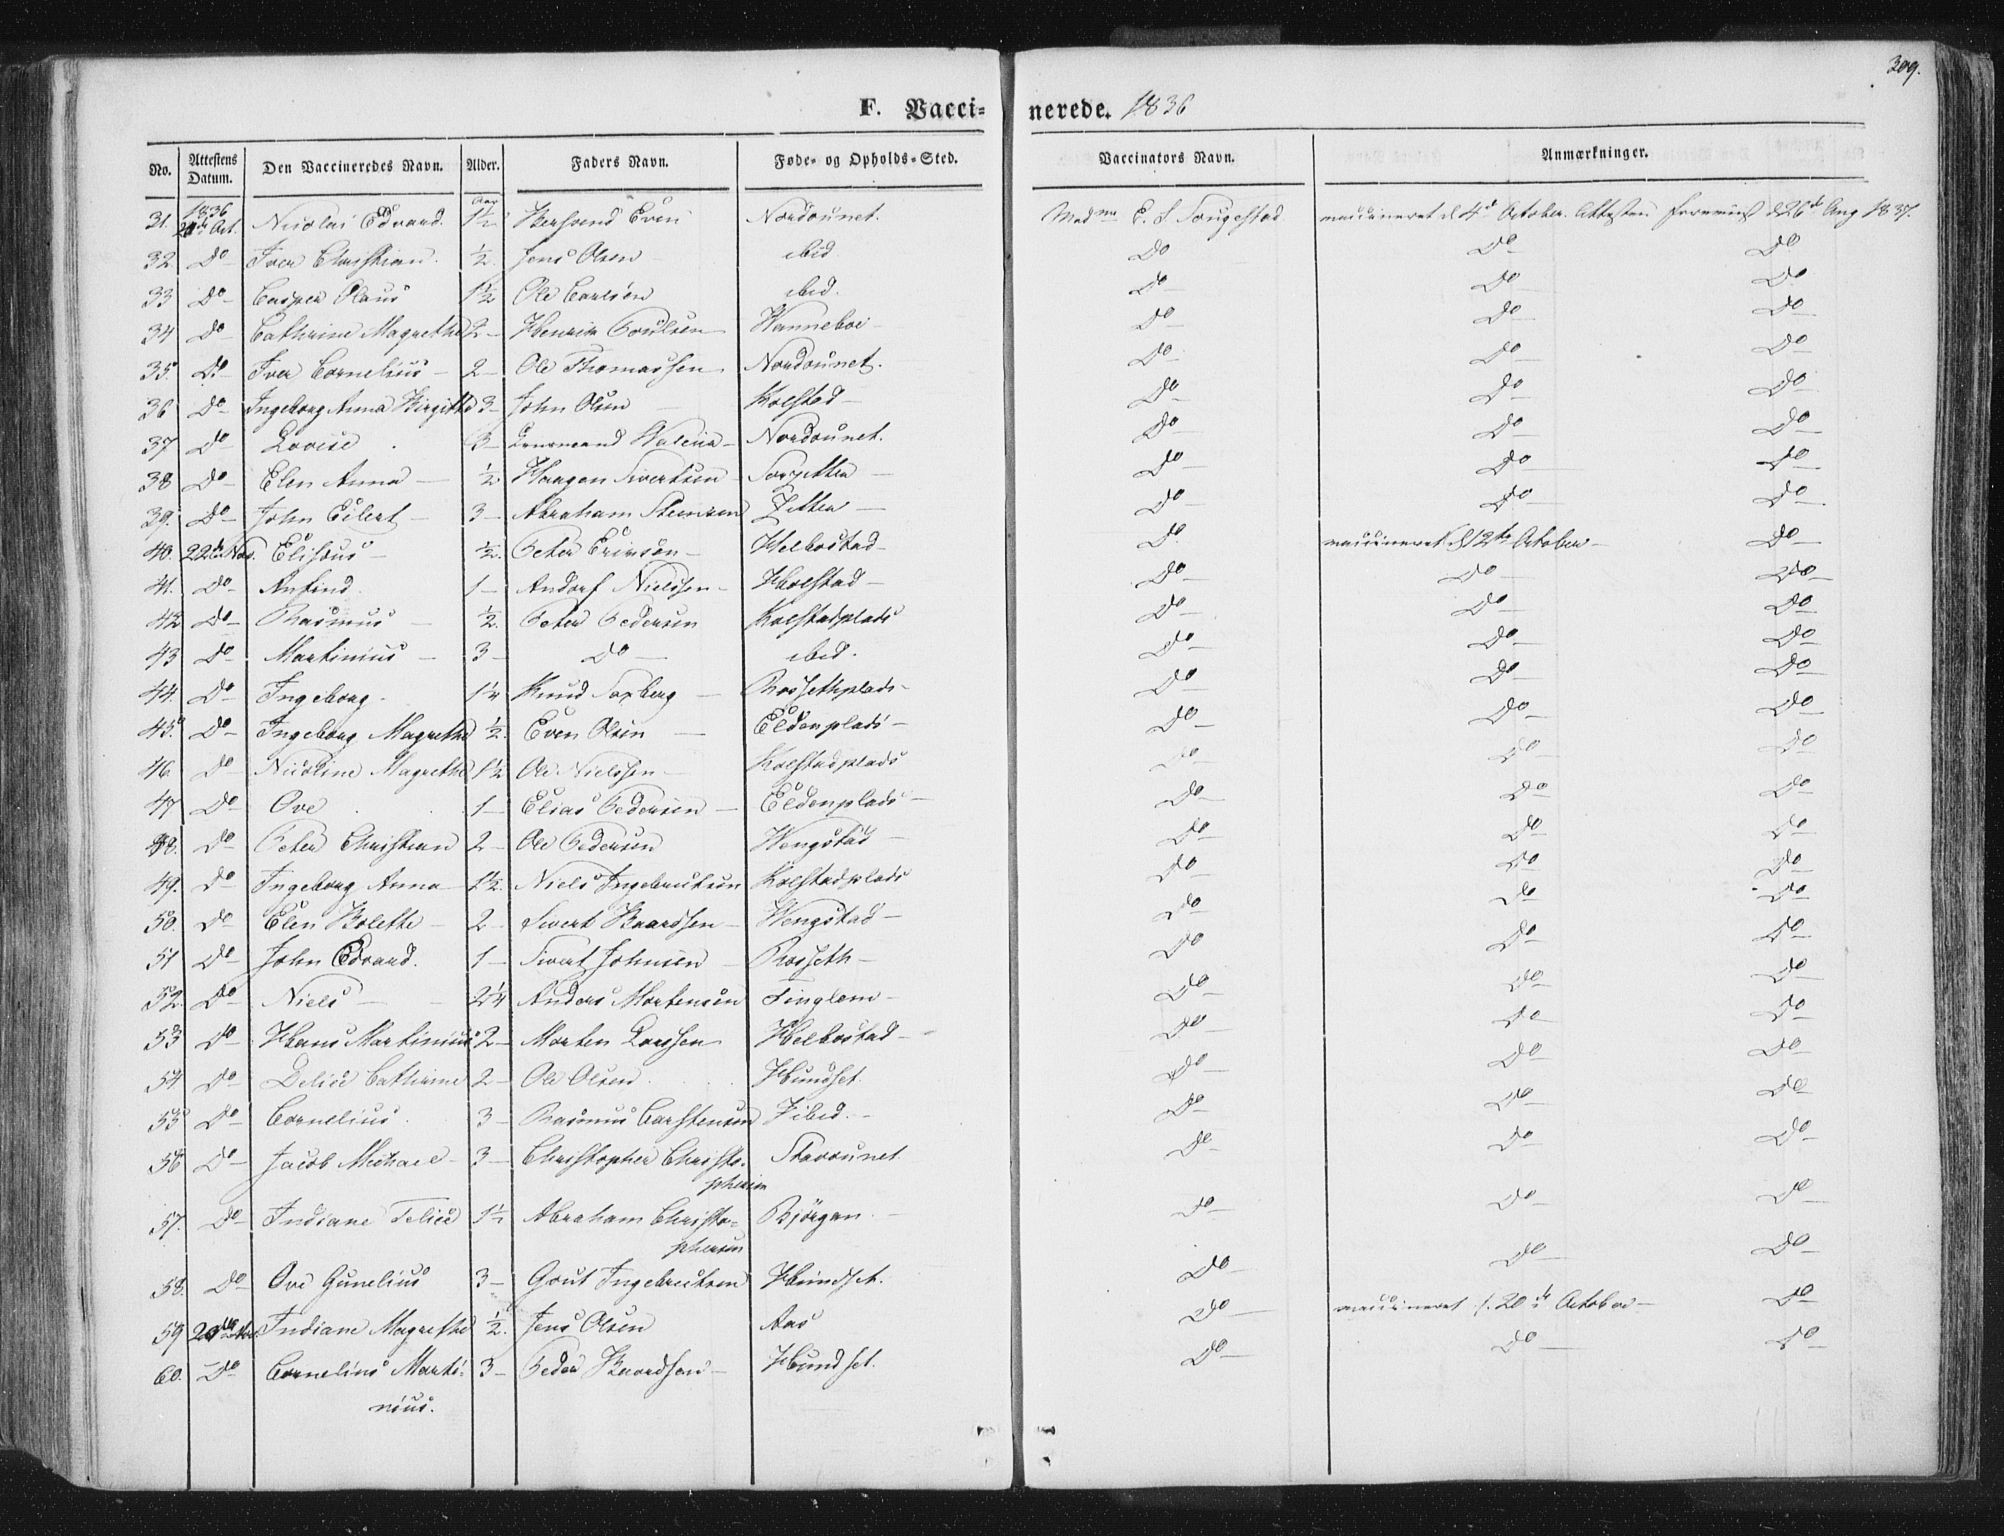 309.
F. Vacci= nerede. 1836
No. Attestens Datum. Den Vaccineredes Navn. Alder. Faders Navn. Føde= og Opholds=Sted. Vaccinators Navn. Anmærkninger.
1836 Aar
31. Oct. Nicolai Edvard. 1½ Even Nordvunet. E. S. vaccineret d 4d October. Attesten d 26d Aug 1837.
32 Do Iver Christian. ½ Jens Olsen ibid Do Do Do
33 Do Casper Olaus 1½ Ole Carlsen ibid. Do Do Do
34 Do Cathrine Magrethe 2 Henrik Poulsen Wanneboe Do Do Do
35. Do Iver Cornelius 2 Ole Thomassen Nordvunet. Do Do Do
36 Do Ingeborg Anna Birgitte 3 John Olsen Kolstad Do Do Do
37 Do Lovise 3 Lensmand Nordvunet. Do Do Do
38 Do Elen Anna ½ Haagen Sivertsen Do Do Do
39. Do John Eilert 3 Abraham Zitter Do Do Do
40. 22de Nov. Elisæus ½ Peter Ericsen Helbostad Do vaccineret d 12te October Do
41. Do Anfind. 1 Andorf Nielssen Holstad Do Do Do
42 Do Rasmus ½ Peter Pedersen Kolstadplads Do Do Do
43 Do Martinius 3 Do ibid. Do Do Do
44. Do Ingeborg. Knud Soxberg Rossethplads Do Do Do
45. Do Ingeborg Magrethe ½ Even Olsen Eldenplads Do Do Do
46 Do Nicoline Magrethe 1½ Ole Nielssen Kolstadplads Do Do Do
47 Do Ove 1 Elias Pedersen Eldenplads Do Do Do
48. Do Peter Christian 2 Ole Pedersen Wengstad Do Do Do
49. Do Ingeborg Anna 1½ Niels Ingebretsen Kolstadplads Do Do Do
50. Do Elen Bolette 2 Sivert Baardsen Wengstad Do Do Do
51 Do John Edvard. 1 Sivert Johnsen Rosseth Do Do Do
52. Do Niels 2¼ Anders Mortensen Tinglem Do Do Do
53 Do Hans Martinius 2 Morten Larssen Helbostad Do Do Do
54 Do Cathrine 2 Ole Olsen Hundset. Do Do Do
55 Do Cornelius. 3 Rasmus Carstensen ibid. Do Do Do
56 Do Jacob Michael 3 Christopher Christo= Storvunet Do Do Do
phersen
57. Do Indiane Felice 1½ Abraham Christo= Bjørgan. Do Do Do
phersen
58. Do Ove Gunelius 3 Gout Ingebretsen Hundset. Do Do Do
59 Nov. Indiane Magrethe ½ Jens Olsen Aas Do vaccineret d. 20de October Do
60. Do Cornelius Marti= 3 Peder Baardsen Hundset. Do Do Do
nius.